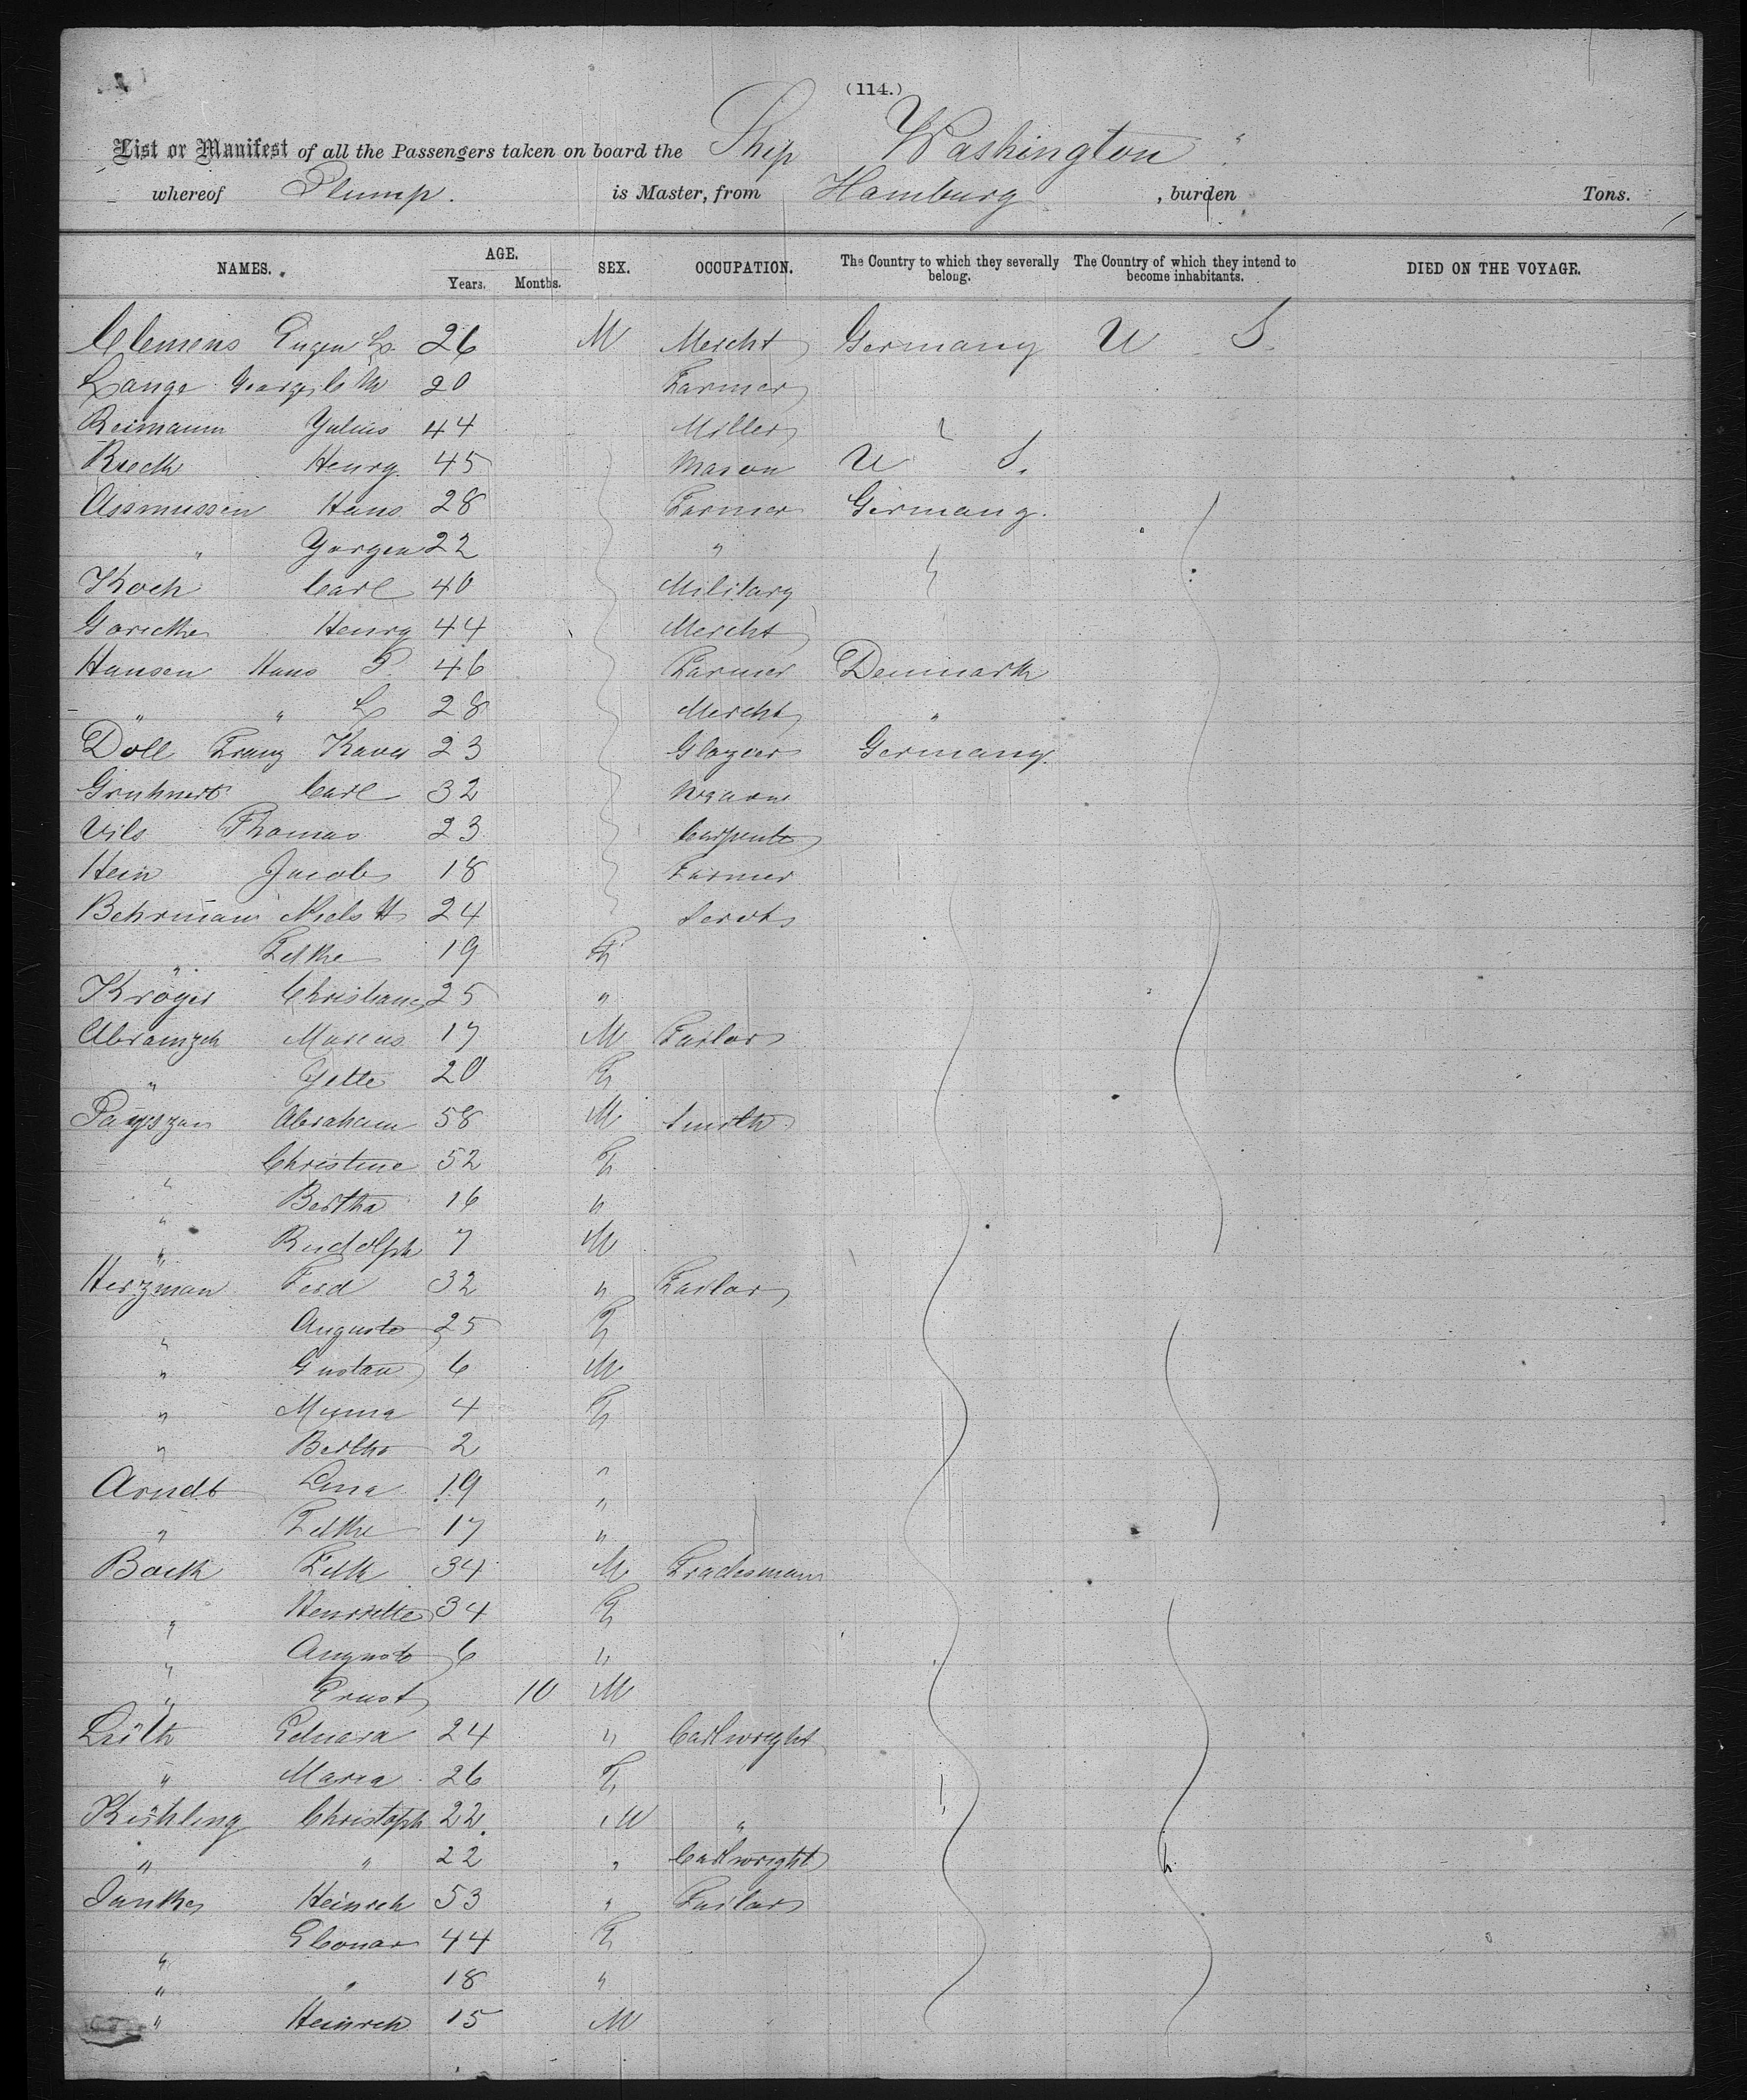 (114.)
List or Manifest of all the Passengers taken on board the Ship Washington
whereof Plump. is Master, from Hamburg , burden Tons.
NAMES. AGE. Years. Months. SEX. OCCUPATION. The Country to which they severally belong. The Country of which they intend to become inhabitants. DIED ON THE VOYAGE.
Clemens Eugen L. 26 M Mercht Germany U S.
Lange George C M 20 Farmer
Reimann Julius 44 Miller
Rieck Henry 45 Mason U S.
Assmussen Hans 28 Farmer Germany.
" Jorgen 22 "
Koch Carl 40 Military
Goricke Henry 44 Mercht
Hansen Hans P. 46 Farmer Denmark
" " L 28 Mercht "
Döll Franz Xaver 23 Glazier Germany.
Gruhnert Carl 32 Mason
Vils Thomas 23 Carpente
Hein Jacob 18 Farmer
Behrman Niels H 24 Servt
" 19 F
Kröger Christiane 25 "
Abramzch Marcus 17 M Tailor
" Jette 20 F
Abraham 58 M Smith
" Christine 52 F
" Bertha 16 "
" Rudolph 7 M
Herzman Ferd 32 " Tailor
" Auguste 25 F
" Gustav 6 M
" Minna 4 F
" Bertha 2 "
Arndt Lina 19 "
" 17 "
Back 34 M Tradesman
" Henriette 34 F
" Auguste 6 "
" Ernst 10 M
Lüth Eduard 24 " Cartwright
" Maria 26 F
Kühling Christoph 22. M "
" " 22 " Cartwright
Janke Heinrch 53 " Tailor
" Elconar 44 F
" " 18 "
" Heinrch 15 M